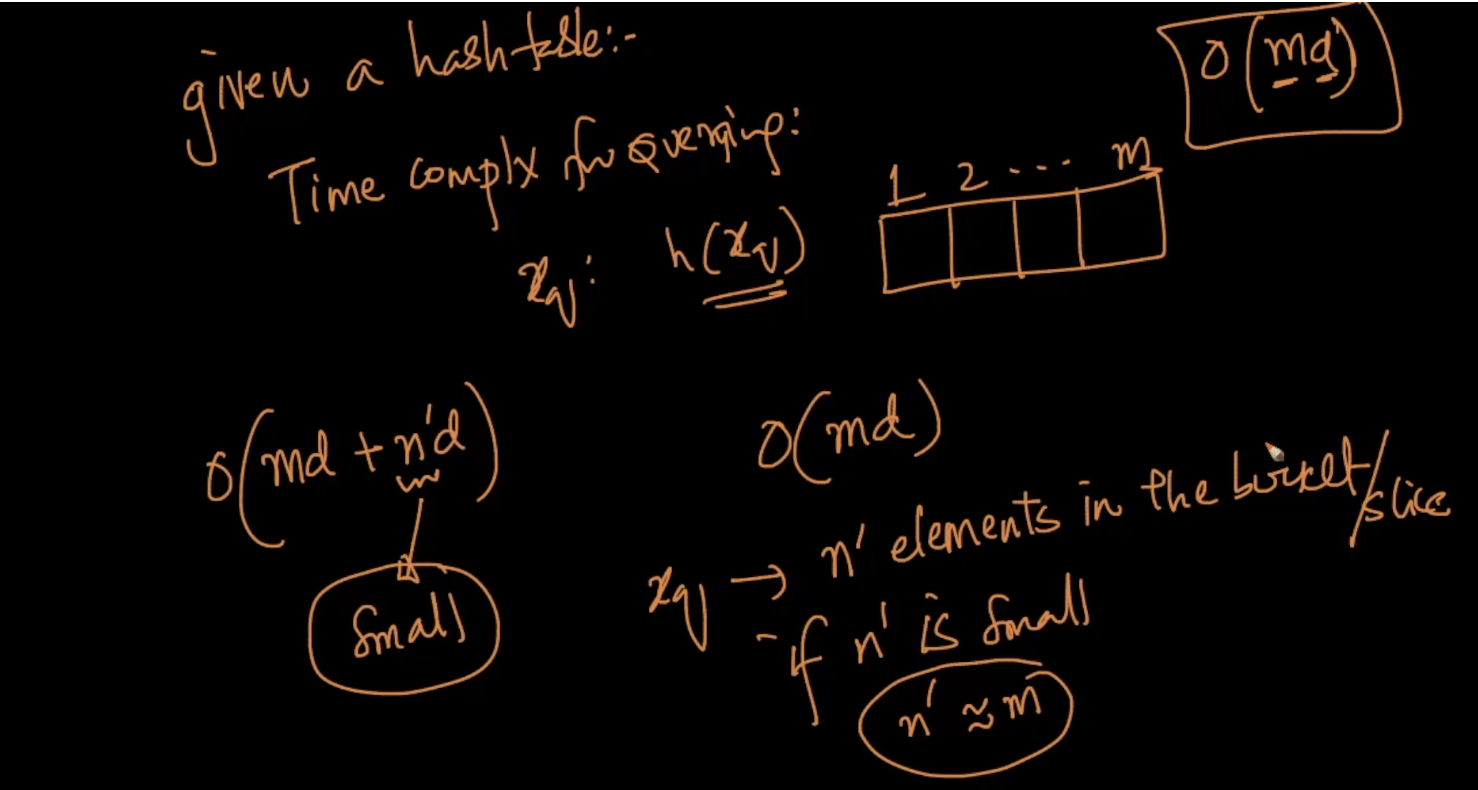 given a hash-table:-
O(md)
Time complx for querying:
1 2 ... m
xq: h(xq)
O(md + n'd)
O(md)
small
xq → n' elements in the bucket/slice
- if n' is small
n' ≈ m